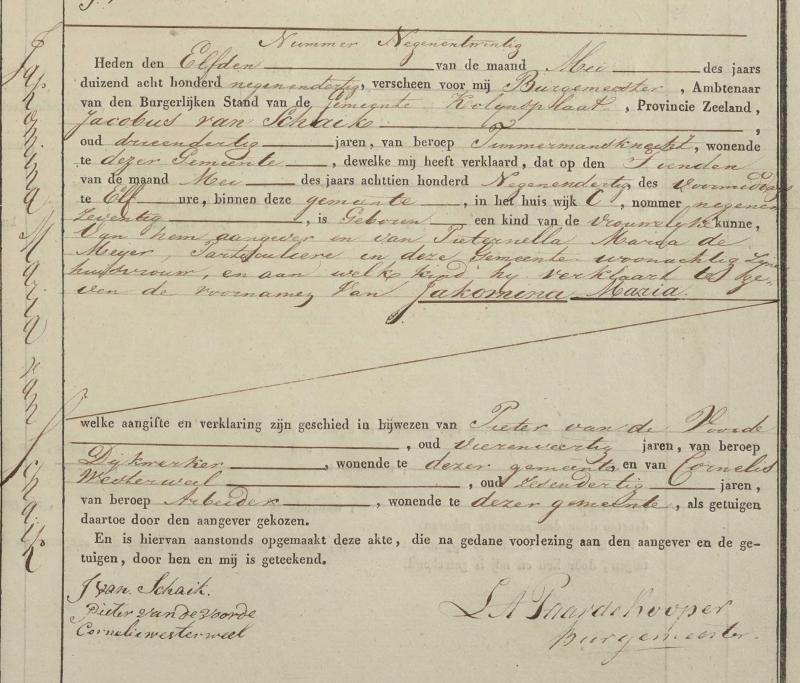 Nummer Negenentwintig
Heden den Elfden van de maand Mei des jaars
duizend acht honderd negenendertig, verscheen voor mij Burgemeester, Ambtenaar
van den Burgerlijken Stand van de gemeente Kolynsplaat, Provincie Zeeland,
Jacobus van Schaik,
oud drieendertig jaren, van beroep Timmermansknecht, wonende
te dezer Gemeente, dewelke mij heeft verklaard, dat op den Tienden
van de maand Mei des jaars achttien honderd Negenendertig des voormiddags
te Elf ure, binnen deze gemeente, in het huis wijk C, nommer negenen
zeventig, is Geboren een kind van de vrouwelyke kunne,
Van hem aangever en van Pieternella Maria de
Meyer, Particuliere in deze Gemeente woonachtig zyne
huisvrouw, en aan welk kind hy verklaart te ge-
ven de voornamen Van Jakomina Maria.
welke aangifte en verklaring zijn geschied in bijwezen van Pieter van de Voorde
, oud vierenveertig jaren, van beroep
Dijkwerker, wonende te dezer gemeente, en van Cornelis
Westerweel, oud zesendertig jaren,
van beroep Arbeider, wonende te dezer gemeente, als getuigen
daartoe door den aangever gekozen.
En is hiervan aanstonds opgemaakt deze akte, die na gedane voorlezing aan den aangever en de ge-
tuigen, door hen en mij is geteekend.
J van Schaik.
Pieter van de Voorde
Cornelis westerweel
L A Paardekooper
burgemeester.
Jakomina Maria van Schaik